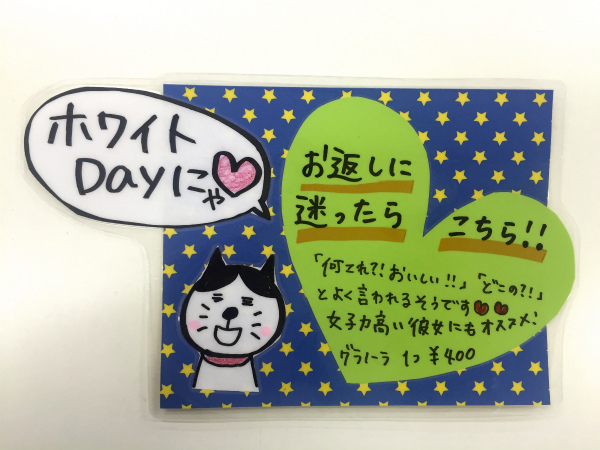 ホワイト
Dayにゃ
お返しに
迷ったら
こちら!!
「何てれ?!おいしい!!」「どこの?!」
とよく言われるそうです
女子力高い彼女にもオススメ!
グラノーラ 1つ ¥400